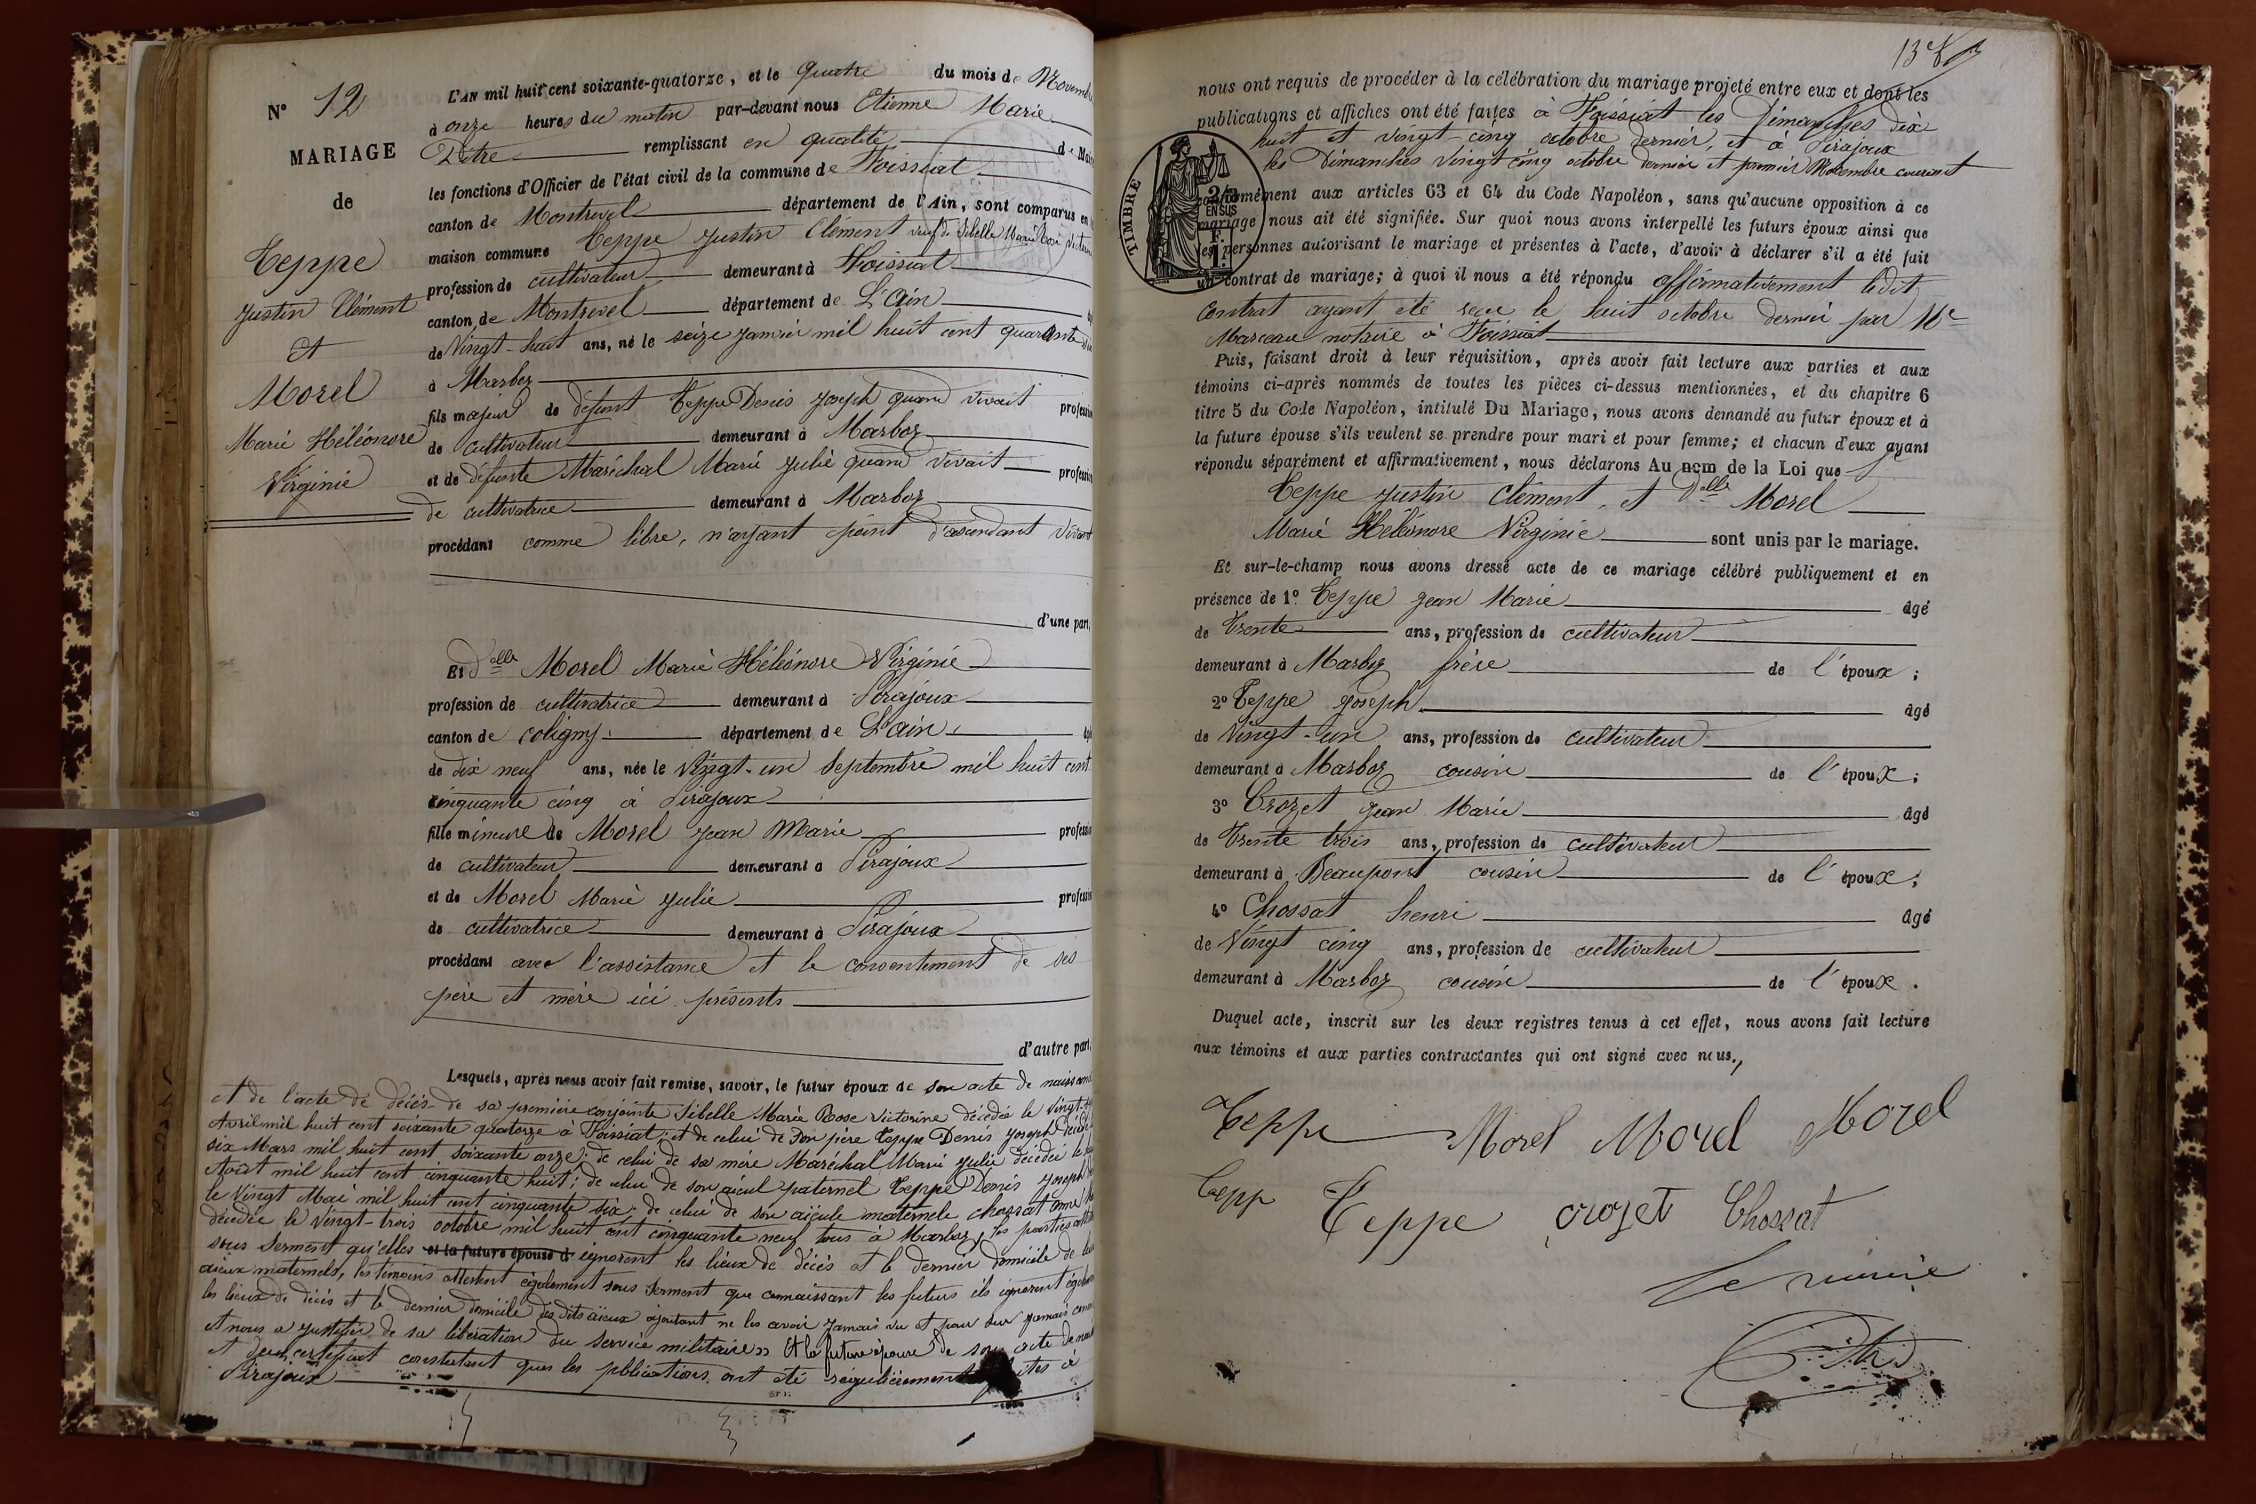 N° 12
MARIAGE
de
Teppe
Justin Clément
et
Morel
Marie Héléonore
Virginie
L'AN mil huit cent soixante-quatorze, et le quatre du mois de Novembre
à onze heures du matin par-devant nous Etienne Marie
remplissant en qualité de Maire
les fonctions d'Officier de l'état civil de la commune de Foissiat
canton de Montrevel département de l'Ain, sont comparus en
maison commune Teppe Justin Clément veuf de Sibelle Marie Rose Victorine
profession de cultivateur demeurant à Foissiat
canton de Montrevel département de L'Ain
de Vingt-huit ans, né le seize janvier mil huit cent quarante six
à Marboz
fils majeur de défunt Teppe Denis Joseph quand vivait profession
de cultivateur demeurant à Marboz
et de défunte Maréchal Marie Julie quand vivait profession
de cultivatrice demeurant à Marboz
procédant comme libre, n'ayant point d'ascendant vivant
d'une part,
Et Delle Morel Marie Héléonore Virginie
profession de cultivatrice demeurant à Pirajoux
canton de Coligny département de L'ain,
de dix neuf ans, née le Vingt-un Septembre mil huit cent
cinquante cinq à Pirajoux
fille mineure de Morel Jean Marie profession
de cultivateur demeurant à Pirajoux
et de Morel Marie Julie profession
de cultivatrice demeurant à Pirajoux
procédant avec l'assistance et le consentement de ses
père et mère ici présents
d'autre part,
Lesquels, après nous avoir fait remise, savoir, le futur époux de son acte de naissance
et de l'acte de décès de sa première conjointe Sibelle Marie Rose Victorine décédée le Vingt
Avril mil huit cent soixante quatorze à Foissiat; et de celui de son père Teppe Denis Joseph décédé
six Mars mil huit cent soixante onze; de celui de sa mère Maréchal Marie Julie décédée le
Août mil huit cent cinquante huit; de celui de son aïeul paternel Teppe Denis Joseph
le Vingt Mai mil huit cent cinquante six; de celui de son aïeule maternelle Chossat Anne
décédée le Vingt-trois octobre mil huit cent cinquante neuf tous à Marboz, les parties
sous serment qu'elles et la future épouse d ignorent les lieux de décès et le dernier domicile de
aïeux maternels, les témoins attestent également sous serment que connaissant les futurs ils ignorent également
les lieux de décès et le dernier domicile des dits aïeux ajoutant ne les avoir jamais vu et jamais
et nous a justifié de sa libération du service militaire Et la future épouse de son acte de
et d'un certificat constatant que les publications ont été régulièrement faites à
Pirajoux
nous ont requis de procéder à la célébration du mariage projeté entre eux et dont les
publications et affiches ont été faites à Foissiat les Dimanches dix
huit et vingt-cinq octobre dernier, et à Pirajoux
les Dimanches vingt cinq octobre dernier et premier Novembre courant
conformément aux articles 63 et 64 du Code Napoléon, sans qu'aucune opposition à ce
mariage nous ait été signifiée. Sur quoi nous avons interpellé les futurs époux ainsi que
les personnes autorisant le mariage et présentes à l'acte, d'avoir à déclarer s'il a été fait
un contrat de mariage; à quoi il nous a été répondu affirmativement ledit
contrat ayant été reçu le huit octobre dernier par Me
Marceau notaire à Foissiat
TIMBRE
EN SUS
Puis, faisant droit à leur réquisition, après avoir fait lecture aux parties et aux
témoins ci-après nommés de toutes les pièces ci-dessus mentionnées, et du chapitre 6
titre 5 du Code Napoléon, intitulé Du Mariage, nous avons demandé au futur époux et à
la future épouse s'ils veulent se prendre pour mari et pour femme; et chacun d'eux ayant
répondu séparément et affirmativement, nous déclarons Au nom de la Loi que
Teppe Justin Clément, et Delle Morel
Marie Héléonore Virginie sont unis par le mariage.
Et sur-le-champ nous avons dressé acte de ce mariage célébré publiquement et en
présence de 1° Teppe Jean Marie âgé
de Trente ans, profession de cultivateur
demeurant à Marboz frère de l'époux;
2° Teppe Joseph âgé
de Vingt-un ans, profession de cultivateur
demeurant à Marboz cousin de l'époux;
3° Crozet Jean Marie âgé
de Trente trois ans, profession de cultivateur
demeurant à Beaupont cousin de l'époux;
4° Chossat henri âgé
de Vingt cinq ans, profession de cultivateur
demeurant à Marboz cousin de l'époux.
Duquel acte, inscrit sur les deux registres tenus à cet effet, nous avons fait lecture
aux témoins et aux parties contractantes qui ont signé avec nous,
Teppe Morel Morel Morel
Tepp Teppe Crozet Chossat
Le maire